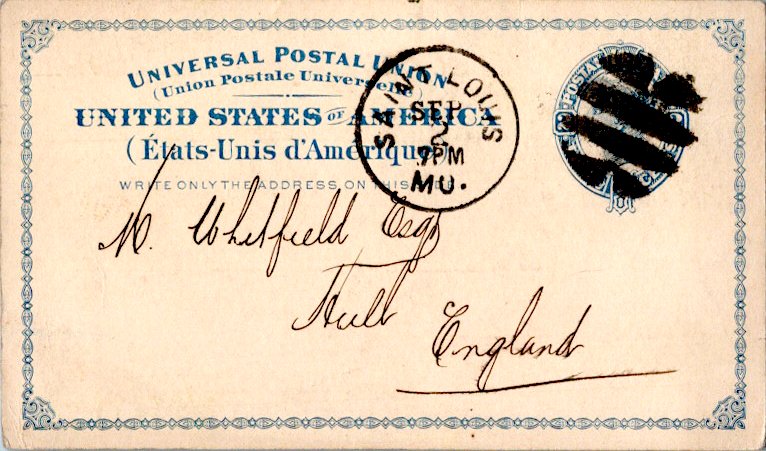 UNIVERSAL POSTAL UNION
(Union Postale Universelle)
UNITED STATES OF AMERICA
(États-Unis d'Amérique)
WRITE ONLY THE ADDRESS ON THIS SIDE
SAINT LOUIS
SEP
2
7PM
MO.
POSTAL
M. Whitfield Esq
Hull
England